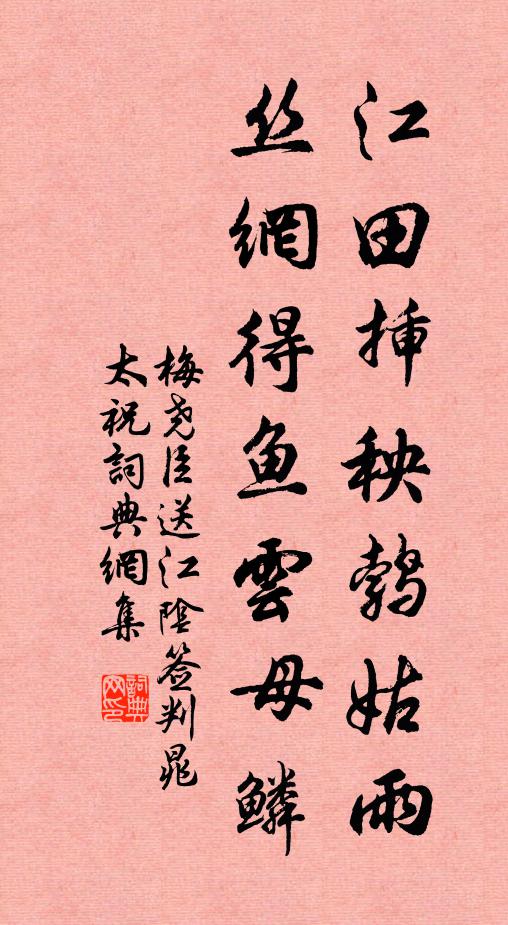 江田插秧鹁姑雨
丝網得鱼雲母鳞
梅尧臣送江陰签判晁
太祝詞典網集
詞典
网印